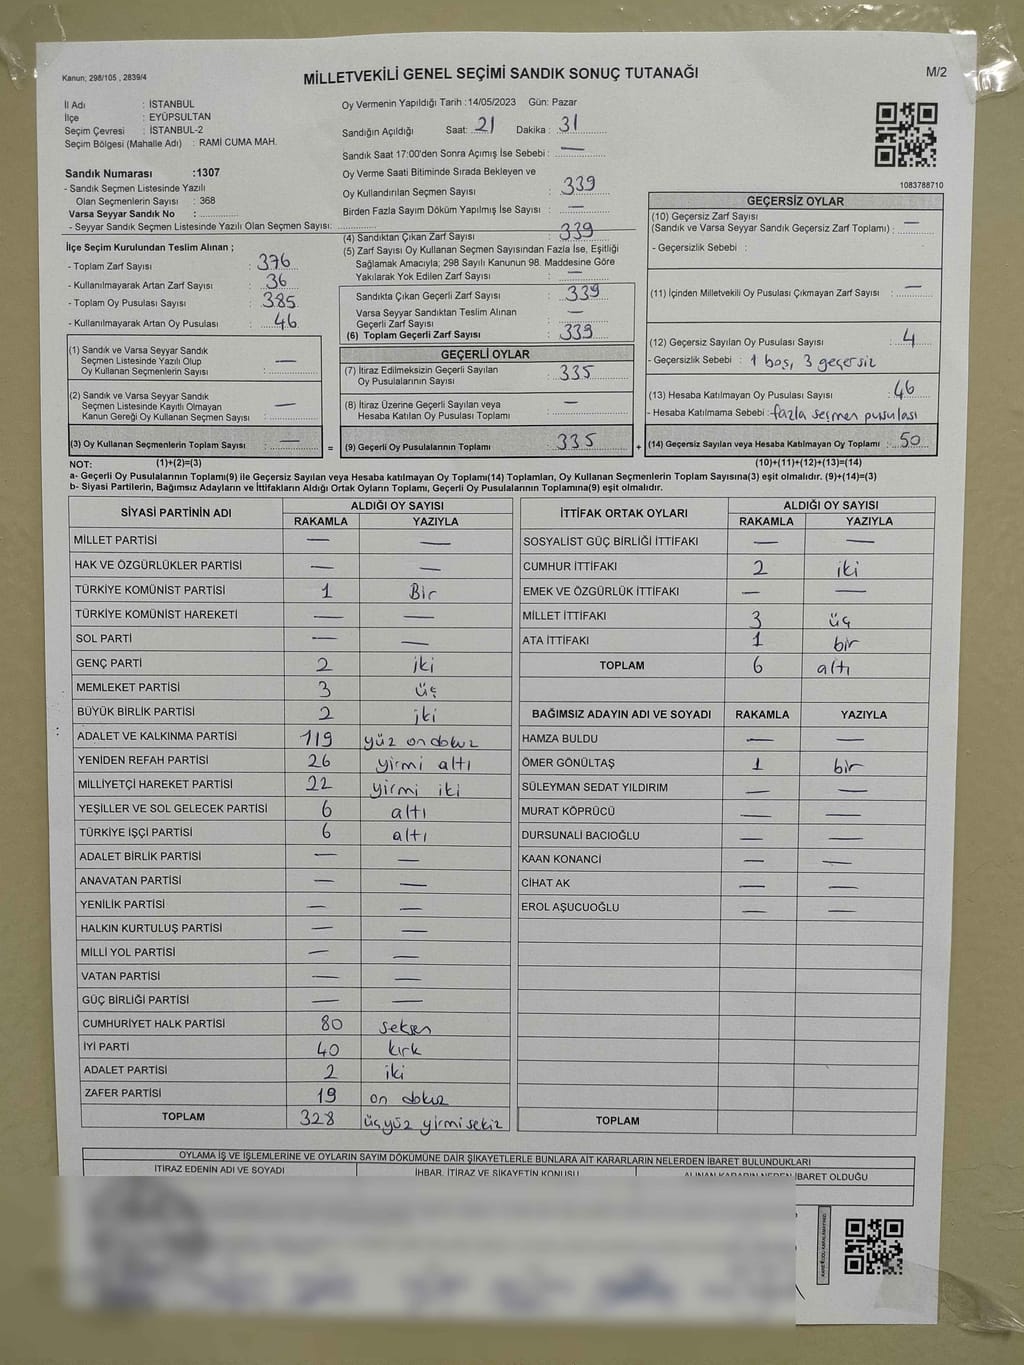 Kanun; 298/105 , 2839/4
MİLLETVEKİLİ GENEL SEÇİMİ SANDIK SONUÇ TUTANAĞI
M/2
İl Adı : İSTANBUL
İlçe : EYÜPSULTAN
Seçim Çevresi : İSTANBUL-2
Seçim Bölgesi (Mahalle Adı) : RAMİ CUMA MAH.
Sandık Numarası :1307
- Sandık Seçmen Listesinde Yazılı
Olan Seçmenlerin Sayısı : 368
Varsa Seyyar Sandık No :
- Seyyar Sandık Seçmen Listesinde Yazılı Olan Seçmen Sayısı:
İlçe Seçim Kurulundan Teslim Alınan ;
- Toplam Zarf Sayısı : 376
- Kullanılmayarak Artan Zarf Sayısı : 36
- Toplam Oy Pusulası Sayısı : 385
- Kullanılmayarak Artan Oy Pusulası : 46
(1) Sandık ve Varsa Seyyar Sandık
Seçmen Listesinde Yazılı Olup
Oy Kullanan Seçmenlerin Sayısı : —
(2) Sandık ve Varsa Seyyar Sandık
Seçmen Listesinde Kayıtlı Olmayan
Kanun Gereği Oy Kullanan Seçmen Sayısı : —
(3) Oy Kullanan Seçmenlerin Toplam Sayısı : —
Oy Vermenin Yapıldığı Tarih :14/05/2023 Gün: Pazar
Sandığın Açıldığı Saat: 21 Dakika : 31
Sandık Saat 17:00'den Sonra Açımış İse Sebebi : —
Oy Verme Saati Bitiminde Sırada Bekleyen ve
Oy Kullandırılan Seçmen Sayısı : 339
Birden Fazla Sayım Döküm Yapılmış İse Sayısı : —
(4) Sandıktan Çıkan Zarf Sayısı : 339
(5) Zarf Sayısı Oy Kullanan Seçmen Sayısından Fazla İse, Eşitliği
Sağlamak Amacıyla; 298 Sayılı Kanunun 98. Maddesine Göre
Yakılarak Yok Edilen Zarf Sayısı : —
Sandıkta Çıkan Geçerli Zarf Sayısı : 339
Varsa Seyyar Sandıktan Teslim Alınan
Geçerli Zarf Sayısı : —
(6) Toplam Geçerli Zarf Sayısı : 339
GEÇERLİ OYLAR
(7) İtiraz Edilmeksizin Geçerli Sayılan
Oy Pusulalarının Sayısı : 335
(8) İtiraz Üzerine Geçerli Sayılan veya
Hesaba Katılan Oy Pusulası Toplamı : —
= (9) Geçerli Oy Pusulalarının Toplamı : 335
1083788710
GEÇERSİZ OYLAR
(10) Geçersiz Zarf Sayısı
(Sandık ve Varsa Seyyar Sandık Geçersiz Zarf Toplamı) : —
- Geçersizlik Sebebi :
(11) İçinden Milletvekili Oy Pusulası Çıkmayan Zarf Sayısı : —
(12) Geçersiz Sayılan Oy Pusulası Sayısı : 4
- Geçersizlik Sebebi : 1 boş, 3 geçersiz
(13) Hesaba Katılmayan Oy Pusulası Sayısı : 46
- Hesaba Katılmama Sebebi : fazla seçmen pusulası
+ (14) Geçersiz Sayılan veya Hesaba Katılmayan Oy Toplamı : 50
NOT: (1)+(2)=(3) (10)+(11)+(12)+(13)=(14)
a- Geçerli Oy Pusulalarının Toplamı(9) ile Geçersiz Sayılan veya Hesaba katılmayan Oy Toplamı(14) Toplamları, Oy Kullanan Seçmenlerin Toplam Sayısına(3) eşit olmalıdır. (9)+(14)=(3)
b- Siyasi Partilerin, Bağımsız Adayların ve İttifakların Aldığı Ortak Oyların Toplamı, Geçerli Oy Pusulalarının Toplamına(9) eşit olmalıdır.
SİYASİ PARTİNİN ADI ALDIĞI OY SAYISI
RAKAMLA YAZIYLA
MİLLET PARTİSİ — —
HAK VE ÖZGÜRLÜKLER PARTİSİ — —
TÜRKİYE KOMÜNİST PARTİSİ 1 Bir
TÜRKİYE KOMÜNİST HAREKETİ — —
SOL PARTİ — —
GENÇ PARTİ 2 iki
MEMLEKET PARTİSİ 3 üç
BÜYÜK BİRLİK PARTİSİ 2 iki
ADALET VE KALKINMA PARTİSİ 119 yüz on dokuz
YENİDEN REFAH PARTİSİ 26 yirmi altı
MİLLİYETÇİ HAREKET PARTİSİ 22 yirmi iki
YEŞİLLER VE SOL GELECEK PARTİSİ 6 altı
TÜRKİYE İŞÇİ PARTİSİ 6 altı
ADALET BİRLİK PARTİSİ — —
ANAVATAN PARTİSİ — —
YENİLİK PARTİSİ — —
HALKIN KURTULUŞ PARTİSİ — —
MİLLİ YOL PARTİSİ — —
VATAN PARTİSİ — —
GÜÇ BİRLİĞİ PARTİSİ — —
CUMHURİYET HALK PARTİSİ 80 seksen
İYİ PARTİ 40 kırk
ADALET PARTİSİ 2 iki
ZAFER PARTİSİ 19 on dokuz
TOPLAM 328 üçyüz yirmisekiz
İTTİFAK ORTAK OYLARI ALDIĞI OY SAYISI
RAKAMLA YAZIYLA
SOSYALİST GÜÇ BİRLİĞİ İTTİFAKI — —
CUMHUR İTTİFAKI 2 iki
EMEK VE ÖZGÜRLÜK İTTİFAKI — —
MİLLET İTTİFAKI 3 üç
ATA İTTİFAKI 1 bir
TOPLAM 6 altı
BAĞIMSIZ ADAYIN ADI VE SOYADI RAKAMLA YAZIYLA
HAMZA BULDU — —
ÖMER GÖNÜLTAŞ 1 bir
SÜLEYMAN SEDAT YILDIRIM — —
MURAT KÖPRÜCÜ — —
DURSUNALİ BACIOĞLU — —
KAAN KONANCİ — —
CİHAT AK — —
EROL AŞUCUOĞLU — —
TOPLAM
OYLAMA İŞ VE İŞLEMLERİNE VE OYLARIN SAYIM DÖKÜMÜNE DAİR ŞİKAYETLERLE BUNLARA AİT KARARLARIN NELERDEN İBARET BULUNDUKLARI
İTİRAZ EDENİN ADI VE SOYADI İHBAR, İTİRAZ VE ŞİKAYETİN KONUSU ALINAN KARARIN NEDEN İBARET OLDUĞU